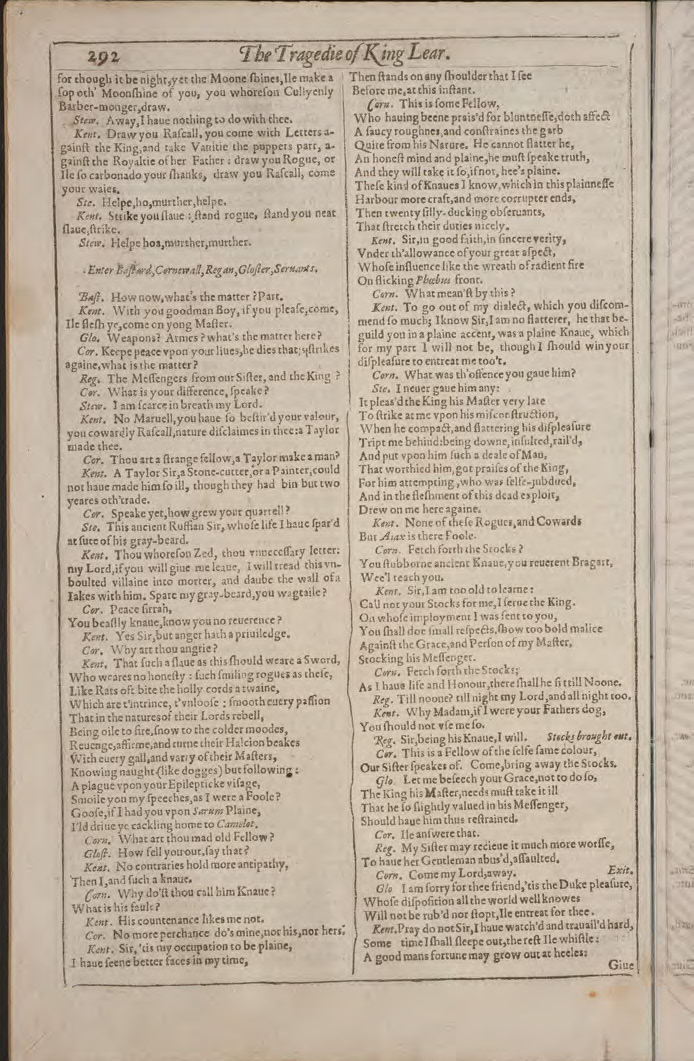 292
The Tragedie of King Lear.
for though it be night, yet the Moone ſhines, Ile make a
ſop oth' Moonſhine of you, you whoreſon Cullyenly
Barber-monger, draw.
Stew. Away, I haue nothing to do with thee.
Kent. Draw you Raſcall, you come with Letters a-
gainſt the King, and take Vanitie the puppets part, a-
gainſt the Royaltie of her Father: draw you Rogue, or
Ile ſo carbonado your ſhanks, draw you Raſcall, come
your waies.
Ste. Helpe, ho, murther, helpe.
Kent. Strike you ſlaue: ſtand rogue, ſtand you neat
ſlaue, ſtrike.
Stew. Helpe hoa, murther, murther.
Enter Baſtard, Cornewall, Regan, Gloſter, Seruants.
Baſt. How now, what's the matter? Part.
Kent. With you goodman Boy, if you pleaſe, come,
Ile fleſh ye, come on yong Maſter.
Glo. Weapons? Armes? what's the matter here?
Cor. Keepe peace vpon your liues, he dies that ſtrikes
againe, what is the matter?
Reg. The Meſſengers from our Siſter, and the King?
Cor. What is your difference, ſpeake?
Stew. I am ſcarce in breath my Lord.
Kent. No Maruell, you haue ſo beſtir'd your valour,
you cowardly Raſcall, nature diſclaimes in thee: a Taylor
made thee.
Cor. Thou art a ſtrange fellow, a Taylor make a man?
Kent. A Taylor Sir, a Stone-cutter, or a Painter, could
not haue made him ſo ill, though they had bin but two
yeares oth'trade.
Cor. Speake yet, how grew your quarrell?
Ste. This ancient Ruffian Sir, whoſe life I haue ſpar'd
at ſute of his gray-beard.
Kent. Thou whoreſon Zed, thou vnneceſſary letter:
my Lord, if you will giue me leaue, I will tread this vn-
boulted villaine into morter, and daube the wall of a
Iakes with him. Spare my gray-beard, you wagtaile?
Cor. Peace ſirrah,
You beaſtly knaue, know you no reuerence?
Kent. Yes Sir, but anger hath a priuiledge.
Cor. Why art thou angrie?
Kent. That ſuch a ſlaue as this ſhould weare a Sword,
Who weares no honeſty: ſuch ſmiling rogues as theſe,
Like Rats oft bite the holly cords a twaine,
Which are t'intrince, t'vnlooſe: ſmooth euery paſſion
That in the natures of their Lords rebell,
Being oile to fire, ſnow to the colder moodes,
Reuenge, affirme, and turne their Halcion beakes
With euery gall, and varry of their Maſters,
Knowing naught (like dogges) but following:
A plague vpon your Epilepticke viſage,
Smoile you my ſpeeches, as I were a Foole?
Gooſe, if I had you vpon Sarum Plaine,
I'ld driue ye cackling home to Camelot.
Corn. What art thou mad old Fellow?
Gloſt. How fell you out, ſay that?
Kent. No contraries hold more antipathy,
Then I, and ſuch a knaue.
Corn. Why do'ſt thou call him Knaue?
What is his fault?
Kent. His countenance likes me not.
Cor. No more perchance do's mine, nor his, nor hers.
Kent. Sir, 'tis my occupation to be plaine,
I haue ſeene better faces in my time,
Then ſtands on any ſhoulder that I ſee
Before me, at this inſtant.
Corn. This is ſome Fellow,
Who hauing beene prais'd for bluntneſſe, doth affect
A ſaucy roughnes, and conſtraines the garb
Quite from his Nature. He cannot flatter he,
An honeſt mind and plaine, he muſt ſpeake truth,
And they will take it ſo, if not, hee's plaine.
Theſe kind of Knaues I know, which in this plainneſſe
Harbour more craft, and more corrupter ends,
Then twenty ſilly-ducking obſeruants,
That ſtretch their duties nicely.
Kent. Sir, in good faith, in ſincere verity,
Vnder th'allowance of your great aſpect,
Whoſe influence like the wreath of radient fire
On flicking Phœbus front.
Corn. What mean'ſt by this?
Kent. To go out of my dialect, which you diſcom-
mend ſo much; I know Sir, I am no flatterer, he that be-
guild you in a plaine accent, was a plaine Knaue, which
for my part I will not be, though I ſhould win your
diſpleaſure to entreat me too't.
Corn. What was th'offence you gaue him?
Ste. I neuer gaue him any:
It pleas'd the King his Maſter very late
To ſtrike at me vpon his miſconſtruction,
When he compact, and flattering his diſpleaſure
Tript me behind: being downe, inſulted, rail'd,
And put vpon him ſuch a deale of Man,
That worthied him, got praiſes of the King,
For him attempting, who was ſelfe-ſubdued,
And in the fleſhment of this dead exploit,
Drew on me here againe.
Kent. None of theſe Rogues, and Cowards
But Aiax is there Foole.
Corn. Fetch forth the Stocks?
You ſtubborne ancient Knaue, you reuerent Bragart,
Wee'l teach you.
Kent. Sir, I am too old to learne:
Call not your Stocks for me, I ſerue the King.
On whoſe imployment I was ſent to you,
You ſhall doe ſmall reſpects, ſhow too bold malice
Againſt the Grace, and Perſon of my Maſter,
Stocking his Meſſenger.
Corn. Fetch forth the Stocks;
As I haue life and Honour, there ſhall he ſit till Noone.
Reg. Till noone? till night my Lord, and all night too.
Kent. Why Madam, if I were your Fathers dog,
You ſhould not vſe me ſo.
Reg. Sir, being his Knaue, I will. Stocks brought out.
Cor. This is a Fellow of the ſelfe ſame colour,
Our Siſter ſpeakes of. Come, bring away the Stocks.
Glo. Let me beſeech your Grace, not to do ſo,
The King his Maſter, needs muſt take it ill
That he ſo ſlightly valued in his Meſſenger,
Should haue him thus reſtrained.
Cor. Ile anſwere that.
Reg. My Siſter may recieue it much more worſſe,
To haue her Gentleman abus'd, aſſaulted.
Corn. Come my Lord, away. Exit.
Glo. I am ſorry for thee friend, 'tis the Duke pleaſure,
Whoſe diſpoſition all the world well knowes
Will not be rub'd nor ſtopt, Ile entreat for thee.
Kent. Pray do not Sir, I haue watch'd and trauail'd hard,
Some time I ſhall ſleepe out, the reſt Ile whiſtle:
A good mans fortune may grow out at heeles:
Giue